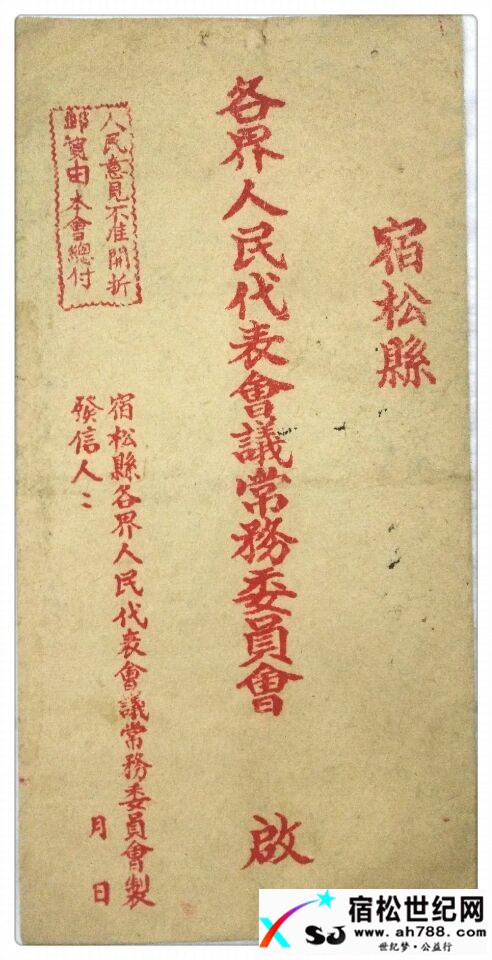 宿松縣
各界人民代表會議常務委員會
啟
人民意見不准開折
郵資由本會總付
宿松縣各界人民代表會議常務委員會製
發信人：
月 日
宿松世纪网
XSJ
www.ah788.com
世纪梦·公益行